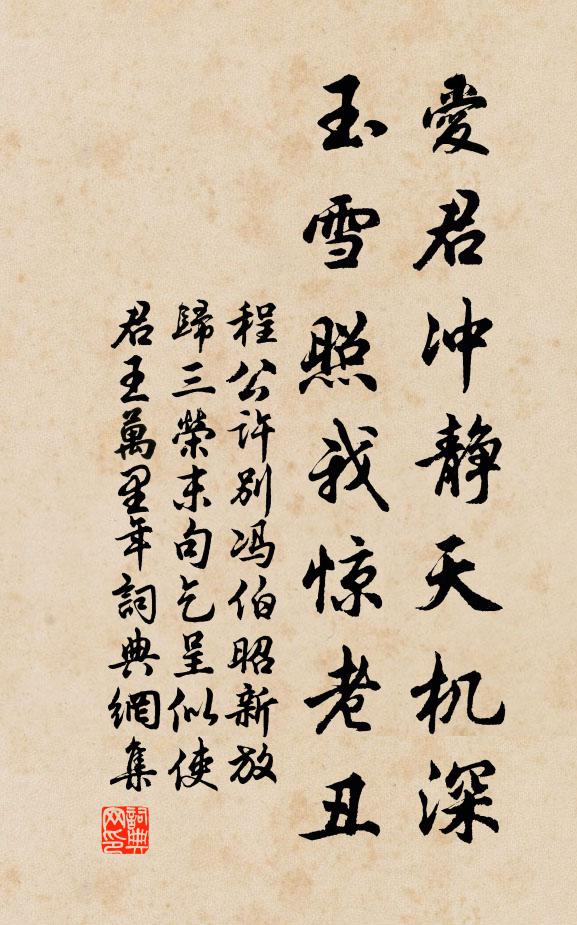 愛君冲静天机深
玉雪照我惊老丑
程公许别冯伯昭新放
歸三榮末句乞呈似使
君王萬里年詞典網集
詞典网印